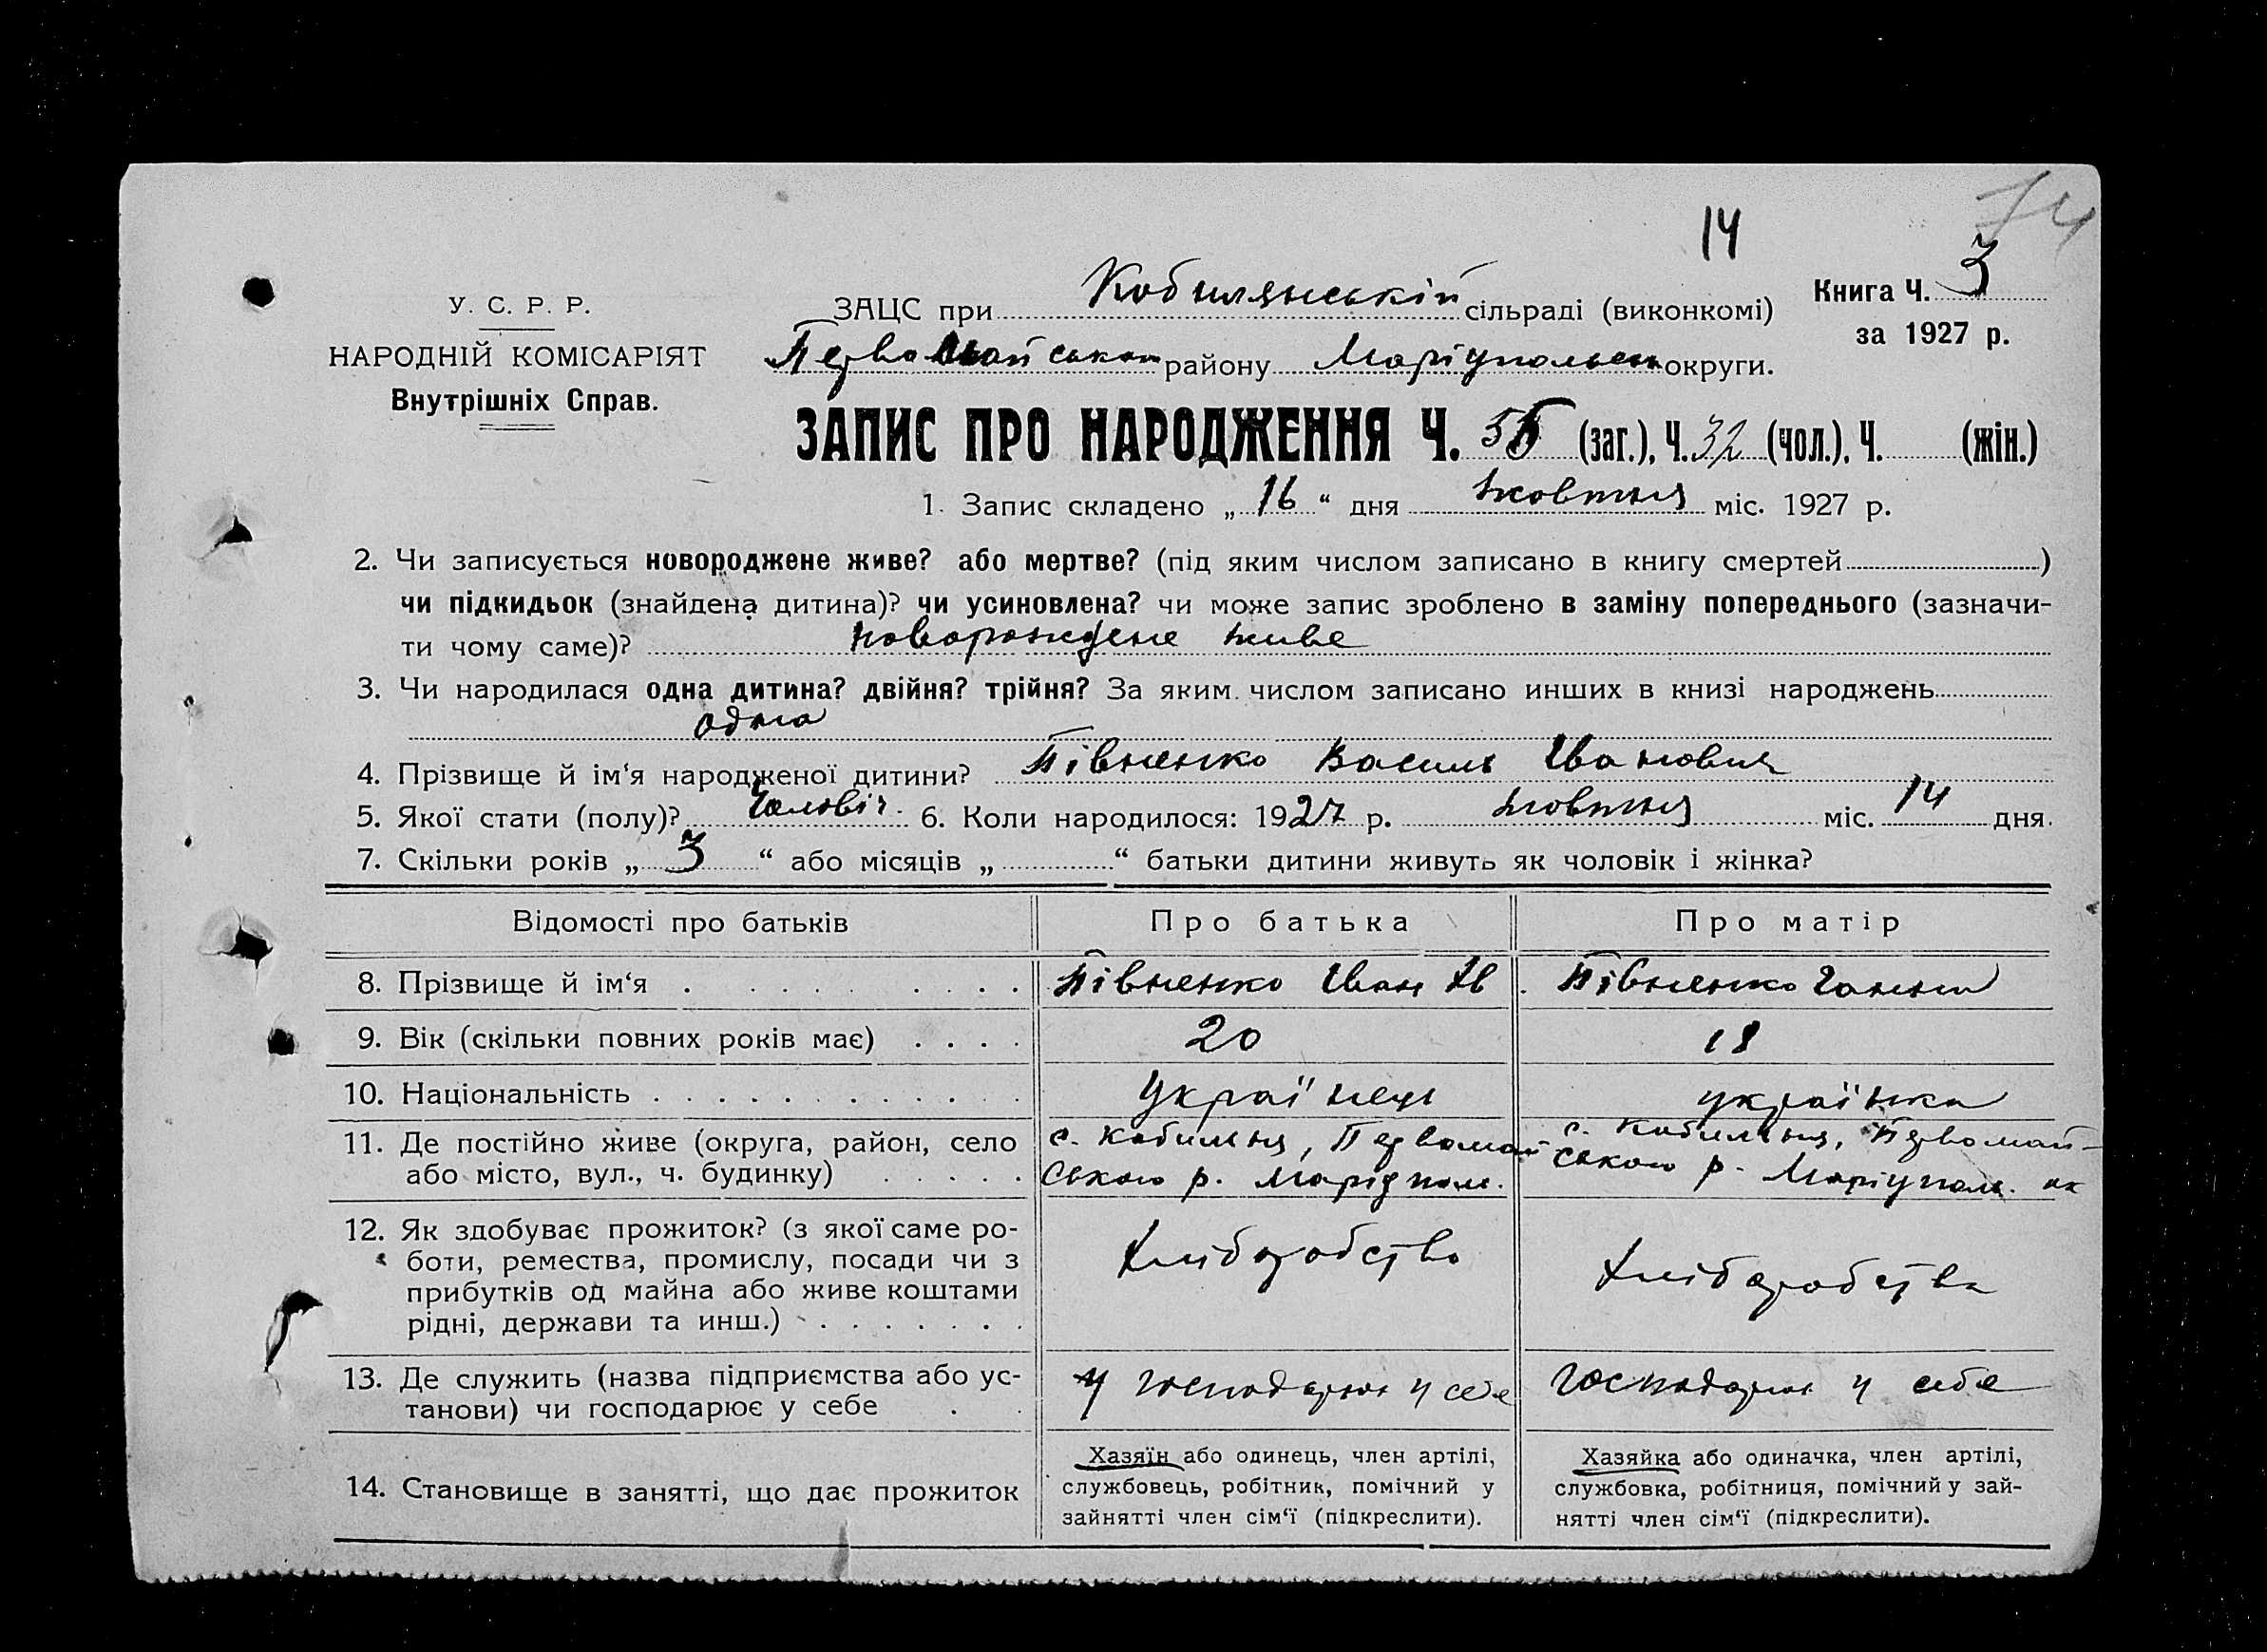 74
14
У. С. Р. Р.
НАРОДНІЙ КОМІСАРІЯТ
Внутрішніх Справ.
ЗАЦС при Кобилянській сільраді (виконкомі)
Первомайськом району Маріупольськ округи.
Книга Ч. 3
за 1927 р.
ЗАПИС ПРО НАРОДЖЕННЯ Ч. (заг.), Ч. 32 (чол.), Ч. (жін.)
1. Запис складено „ 16 “ дня жовтня міс. 1927 р.
2. Чи записується новороджене живе? або мертве? (під яким числом записано в книгу смертей )
чи підкидьок (знайдена дитина)? чи усиновлена? чи може запис зроблено в заміну попереднього (зазначи-
ти чому саме)? новорождене живе
3. Чи народилася одна дитина? двійня? трійня? За яким числом записано инших в книзі народжень
одна
4. Прізвище й ім‘я народженої дитини? Півненко Василь Іванович
5. Якої стати (полу)? Чоловіч. 6. Коли народилося: 1927 р. жовтня міс. 14 дня.
7. Скільки років „ 3 “ або місяців „ “ батьки дитини живуть як чоловік і жінка?
Відомості про батьків Про батька Про матір
8. Прізвище й ім‘я Півненко Іван Ів. Півненко Ганна
9. Вік (скільки повних років має) 20 18
10. Національність Українець українка
11. Де постійно живе (округа, район, село
або місто, вул., ч. будинку)
с. Кобильня, Первомай
ського р. Маріупол.
с. Кобильня, Первомай-
ського р. Маріупол. ок
12. Як здобуває прожиток? (з якої саме ро-
боти, ремества, промислу, посади чи з
прибутків од майна або живе коштами
рідні, держави та инш.)
Хліборобство
Хліборобства
13. Де служить (назва підприємства або ус-
танови) чи господарює у себе
у господарює у себе
господарює у себе
14. Становище в занятті, що дає прожиток
Хазяїн або одинець, член артілі,
службовець, робітник, помічний у
зайнятті член сім‘ї (підкреслити).
Хазяйка або одиначка, член артілі,
службовка, робітниця, помічний у зай-
нятті член сім‘ї (підкреслити).